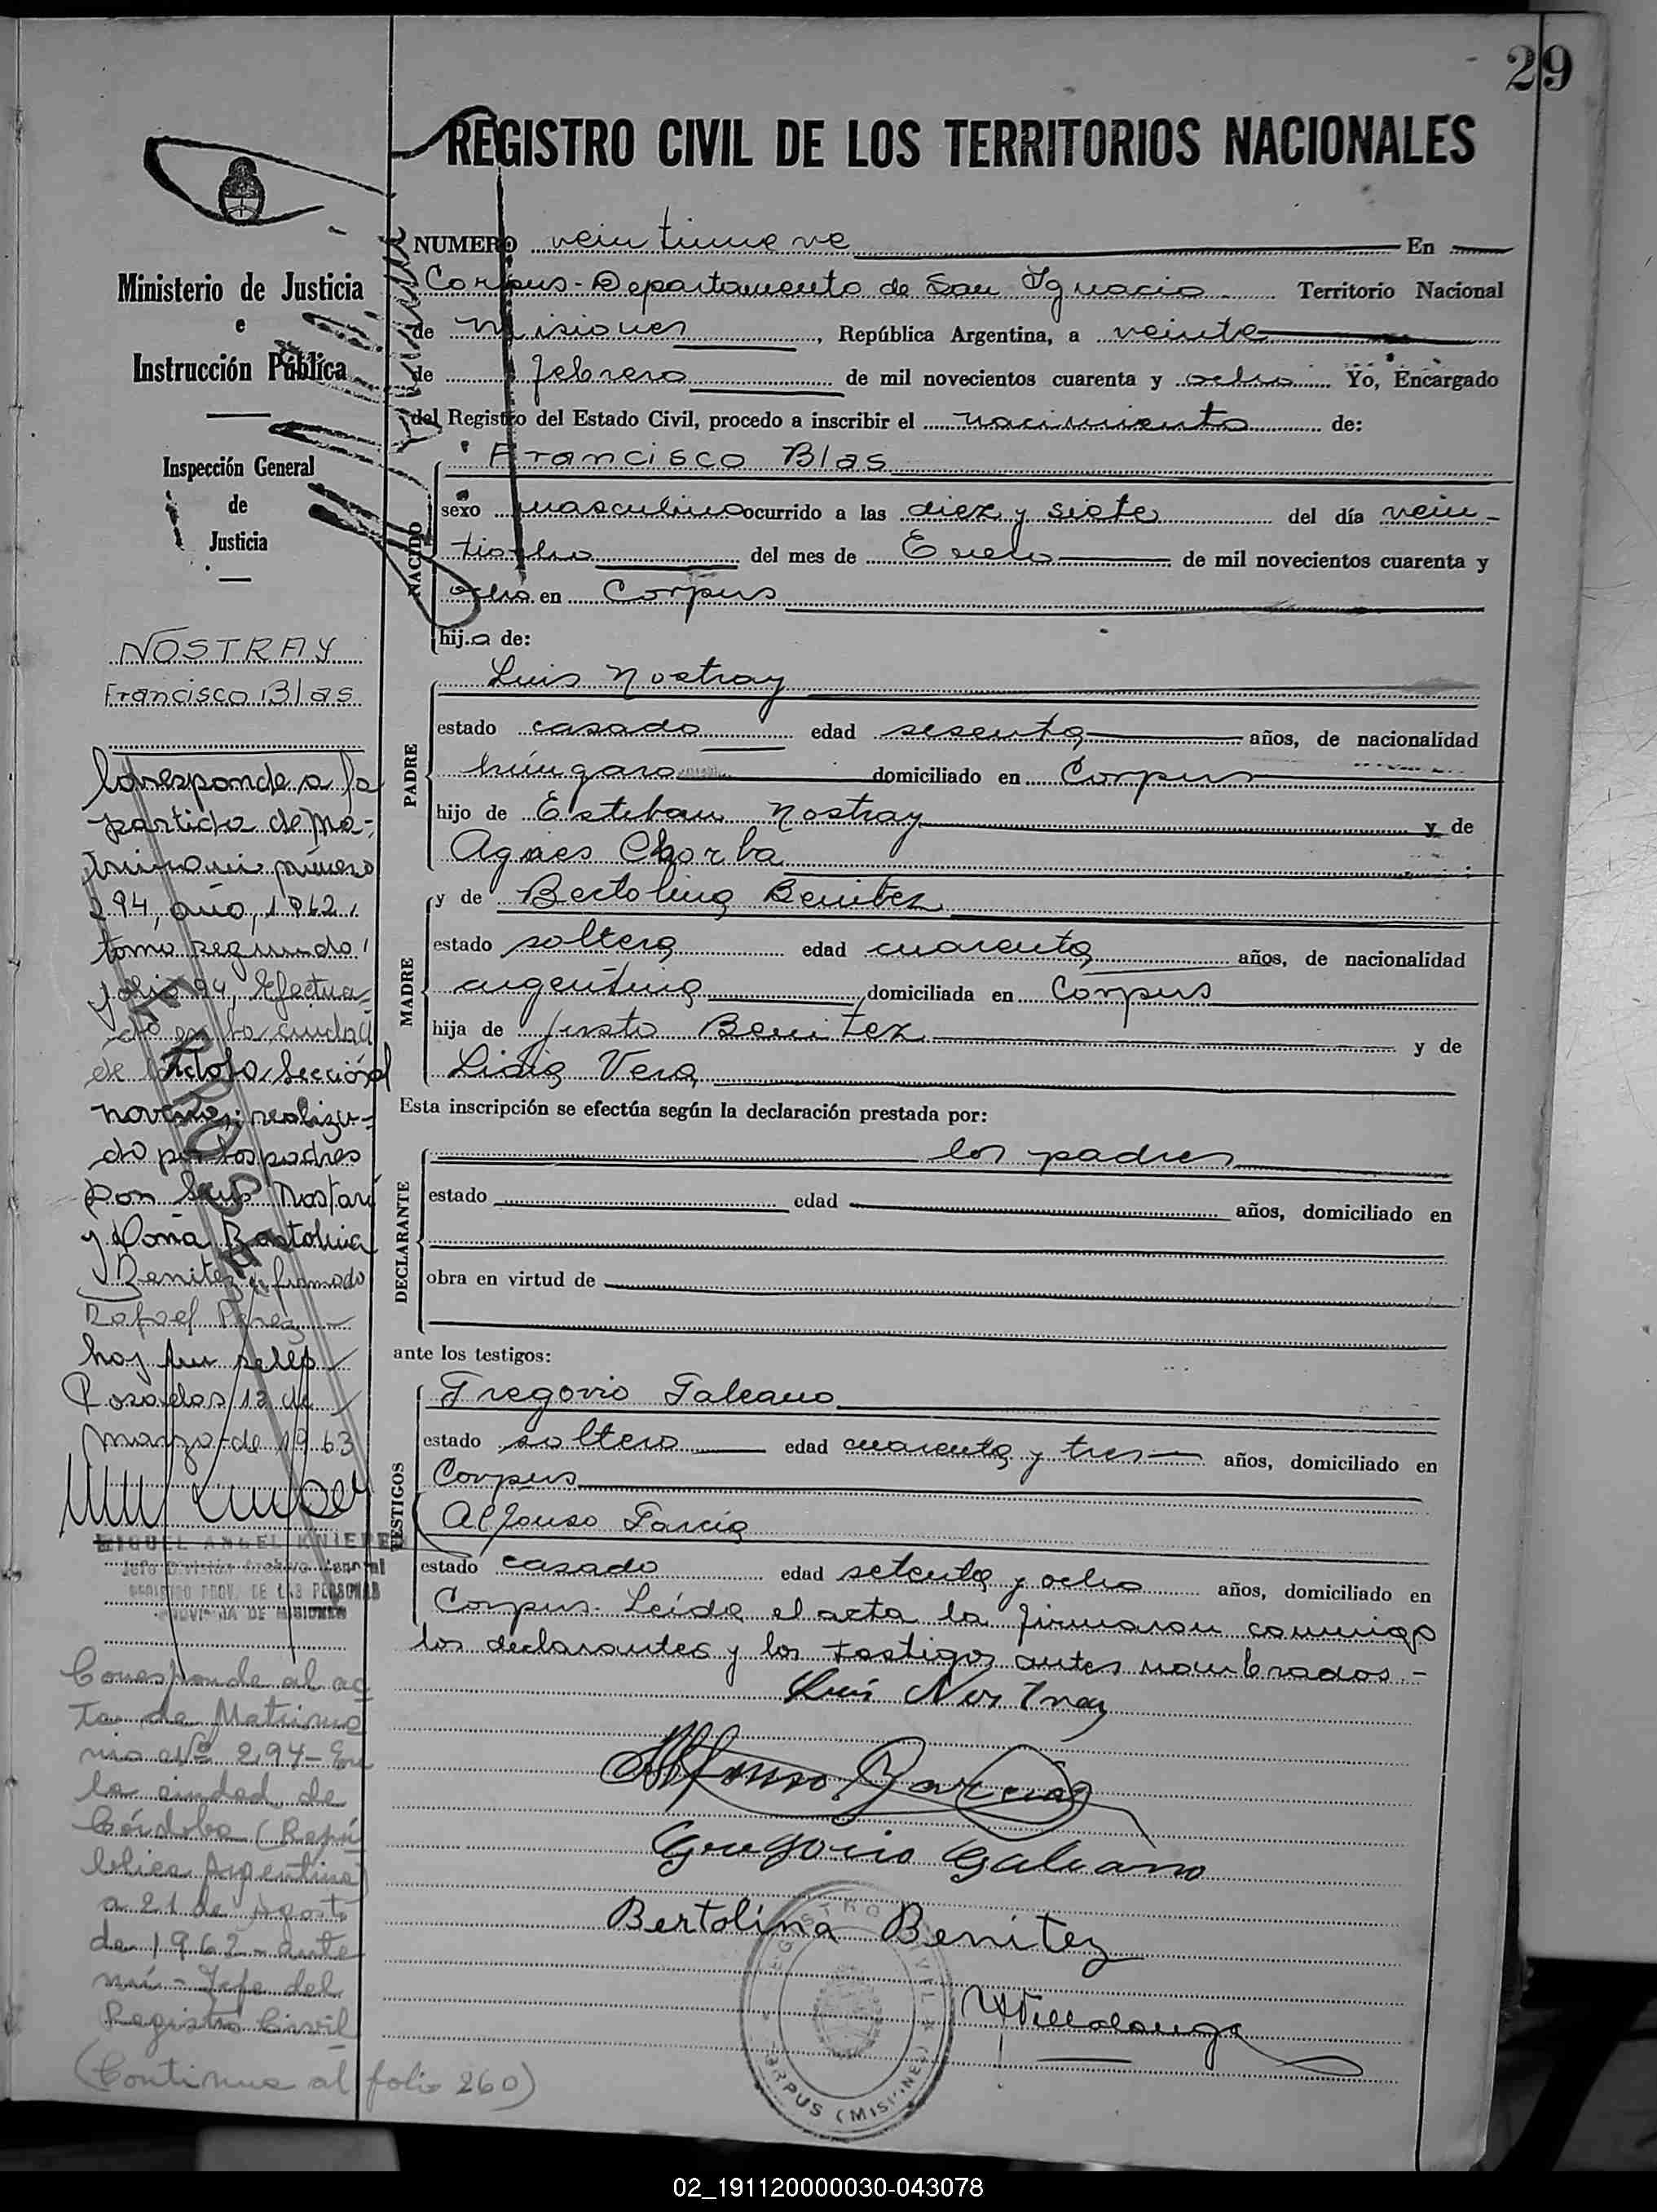 29
REGISTRO CIVIL DE LOS TERRITORIOS NACIONALES
NUMERO veintinueve En
Corpus - Departamento de San Ignacio Territorio Nacional
de Misiones, República Argentina, a veinte
de febrero de mil novecientos cuarenta y ocho. Yo, Encargado
del Registro del Estado Civil, procedo a inscribir el nacimiento de:
Francisco Blas
NACIDO
sexo masculino ocurrido a las diez y siete del día vein-
tiocho del mes de Enero de mil novecientos cuarenta y
ocho en Corpus
hijo de:
PADRE
Luis Nostray
estado casado edad sesenta años, de nacionalidad
húngaro domiciliado en Corpus
hijo de Esteban Nostray y de
Agnes Chorba
MADRE
y de Bertolina Benitez
estado soltera edad cuarenta años, de nacionalidad
argentina, domiciliada en Corpus
hija de Justo Benitez y de
Lidia Vera
Esta inscripción se efectúa según la declaración prestada por:
DECLARANTE
los padres
estado edad años, domiciliado en
obra en virtud de
ante los testigos:
TESTIGOS
Gregorio Galeano
estado soltero edad cuarenta y tres años, domiciliado en
Corpus
Alfonso Garcia
estado casado edad setenta y ocho años, domiciliado en
Corpus. Leída el acta la firmaron conmigo
los declarantes y los testigos antes nombrados.-
Luis Nostray
Alfonso Garcia
Gregorio Galeano
Bertolina Benitez
Villalonga
REGISTRO CIVIL
CORPUS (MISIONES)
Ministerio de Justicia
e
Instrucción Pública
Inspección General
de
Justicia
NOSTRAY
Francisco Blas
Corresponde a la
partida de Ma-
trimonio número
294, año, 1962,
tomo segundo,
folio 94, Efectua-
do en la ciudad
de Córdoba, Sección
novena; realiza-
do por los padres
Don Luis Nostray
y Doña Bertolina
Benitez, firmado
Rafael Perez
hoy
Posadas, 12 de
marzo de 1963
MIGUEL ANGEL KNIEPER
Jefe División Archivo General
REGISTRO PROV. DE LAS PERSONAS
PROVINCIA DE MISIONES
Corresponde al ac
ta de Matrimo
nio Nº 294 - En
la ciudad de
Córdoba (Repú
blica Argentina)
a 21 de Agosto
de 1962 - ante
mí - Jefe del
Registro Civil
(Continua al folio 260)
02_191120000030-043078